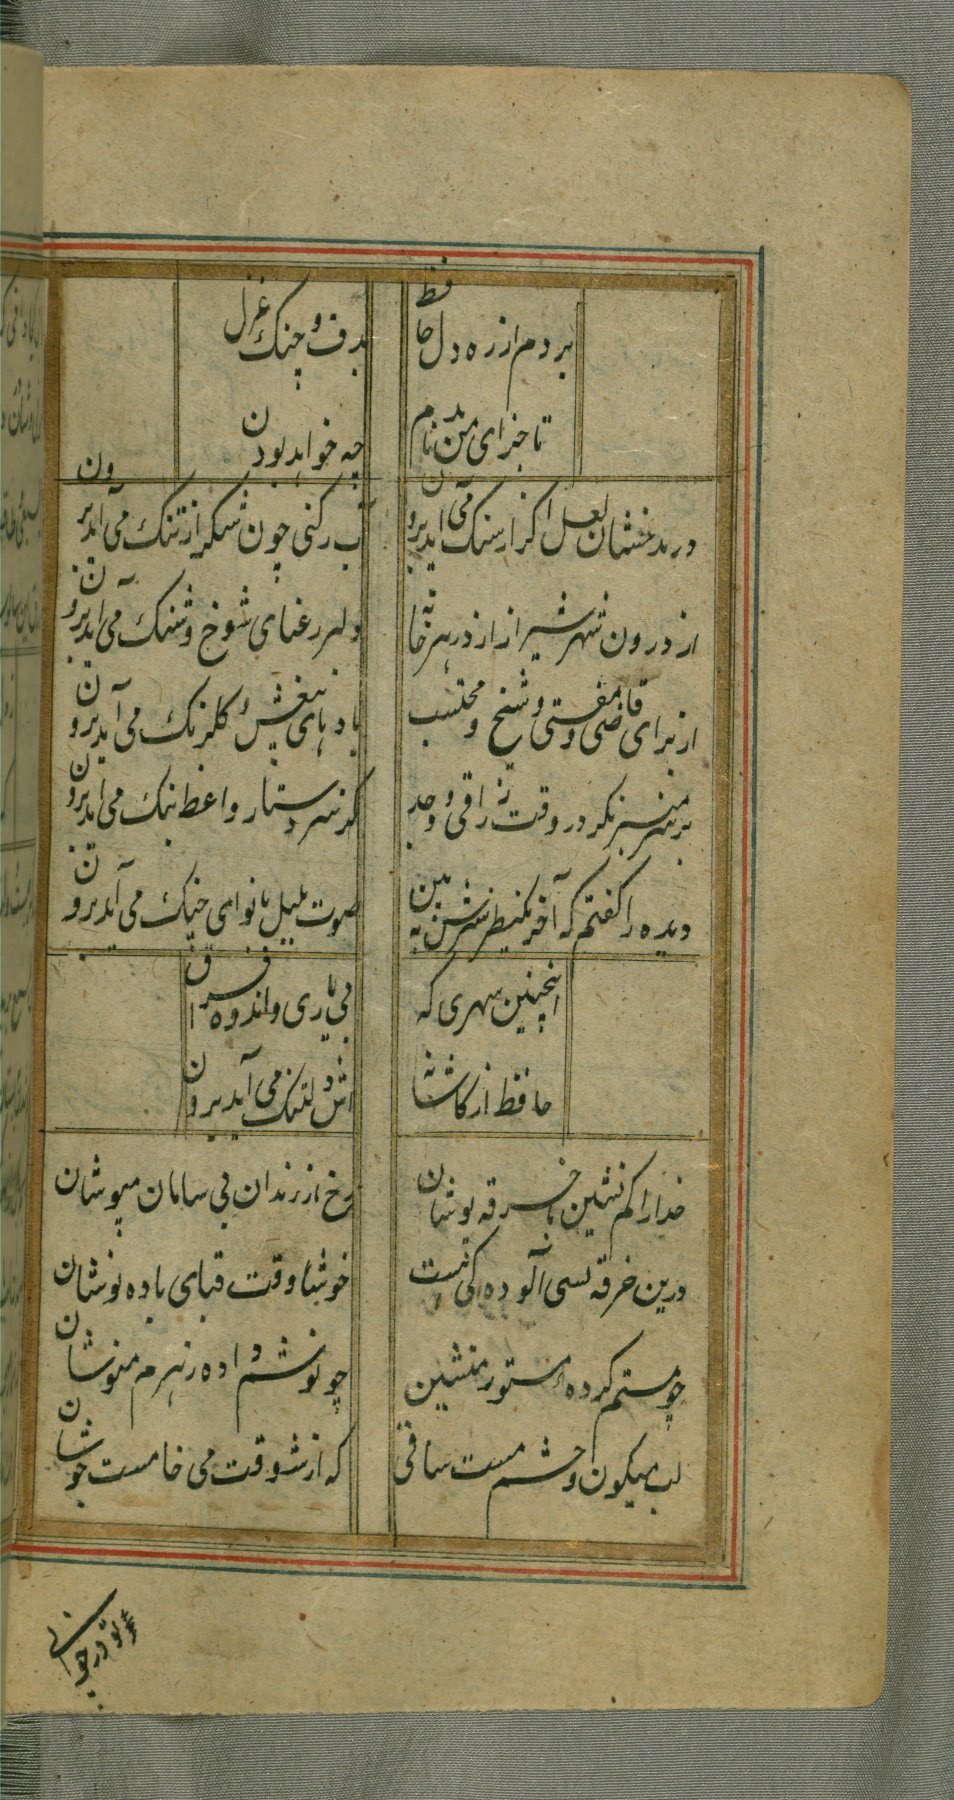 بردم از ره دل حافظ
بدف و چنک غزل
تا جزای من بدنام
چه خواهد بودن
در بدخشان لعل اکر از سنک می آید برون
آب رکنی چون شکر از تنک می آید برون
از درون شهر شیراز از در هر خانه
دلبر رعنای شوخ و شنک می آید برون
از برای قاضی و مفتی و شیخ و محتسب
بادهای بیغش کلرنک می آید برون
بر سر منبر نکر در وقت زراقی و وجد
کز سر دستار واعظ بنک می آید برون
دیده را کفتم که آخر یکنظر سیرش به بین
صوت بلبل با نوای چنک می آید برون
اینچنین شهری که
بی یاری و اندوه فراق
حافظ از کاشانه
اش دلتنک می آید برون
خدا را کم نشین با خرقه پوشان
رخ از رندان بی سامان مپوشان
درین خرقه بسی آلوده کی نیست
خوشا وقت قبای باده نوشان
چو مستم کرده مستور منشین
چو نوشم داده زهرم منوشان
لب میکون و چشم مست ساقی
که از شوقت می خامست جوشان